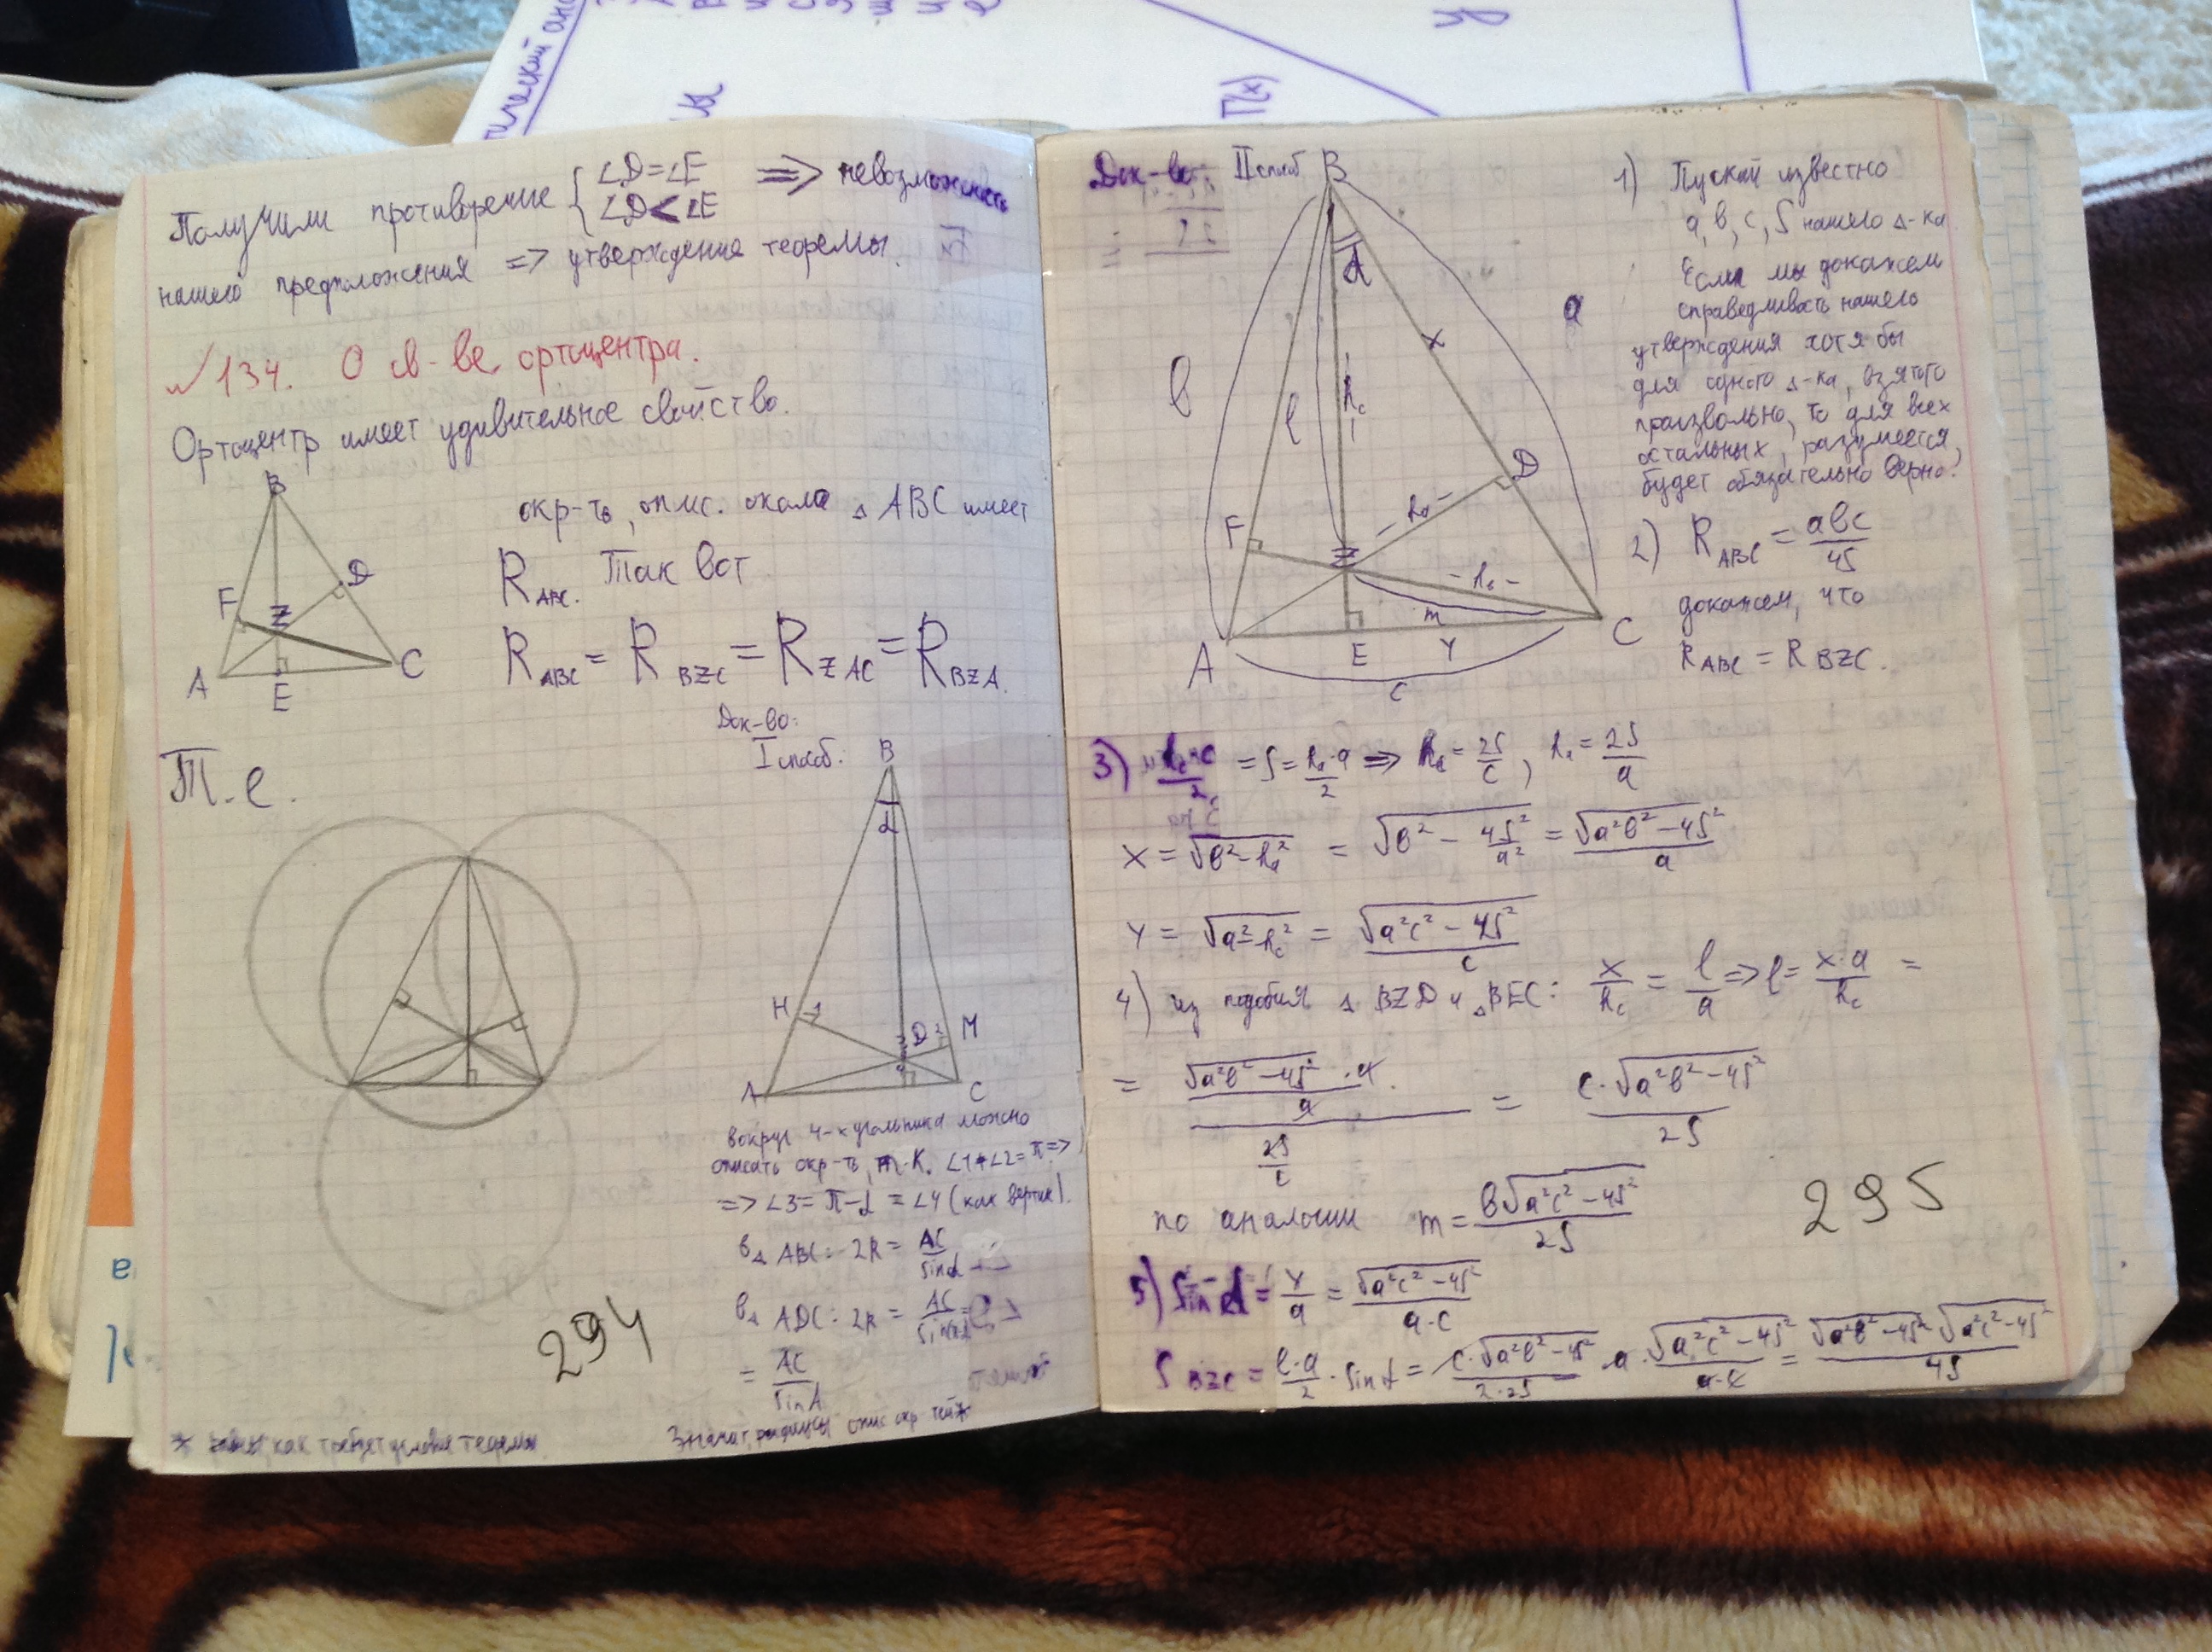 Получили противоречие { ∠D=∠E
∠D<∠E ⇒ невозможность
нашего предположения ⇒ утверждение теоремы.
√134. О св-ве ортоцентра.
Ортоцентр имеет удивительное свойство.
B
F
Z
D
A
E
C
окр-ть, опис. около △ABC имеет
R_ABC. Так вот
R_ABC = R_BZC = R_ZAC = R_BZA.
Т.е.
Док-во:
I способ:
B
α
H
1
D
2
M
3
A
C
вокруг 4-хугольника можно
описать окр-ть, т.к. ∠1+∠2=π ⇒
⇒ ∠3 = π-α = ∠4 (как вертик).
в △ ABC: 2R = AC/sinα
в △ ADC: 2R = AC/
= AC/sinα
Значит, радиусы опис окр тей*
* как требует условие теоремы
294
Док-во: II способ
B
α
a
x
в
l
h_c
D
h_a
F
Z
m
A
E
Y
C
c
1) Пускай известно
a, в, c, S нашего △-ка
Если мы докажем
справедливость нашего
утверждения хотя бы
для одного △-ка, взятого
произвольно, то для всех
остальных, разумеется,
будет обязательно верно!
2) R_ABC = aвc/4S
докажем, что
R_ABC = R_BZC.
3) h_c·c/2 = S = h_a·a/2 ⇒ h_c = 2S/c, h_a = 2S/a
x = √(в²-h_a²) = √(в² - 4S²/a²) = √(a²в²-4S²)/a
Y = √(a²-h_c²) = √(a²c²-4S²)/c
4) из подобия △ BZD и △BEC: x/h_c = l/a ⇒ l = x·a/h_c =
= (√(a²в²-4S²)·a/a)/(2S/c) = c·√(a²в²-4S²)/2S
по аналогии m = в√(a²c²-4S²)/2S
295
5) Sin α = Y/a = √(a²c²-4S²)/a·c
S_BZC = l·a/2 · sinα = c·√(a²в²-4S²)/2·2S · a · √(a²c²-4S²)/a·c = √(a²в²-4S²)√(a²c²-4S²)/4S